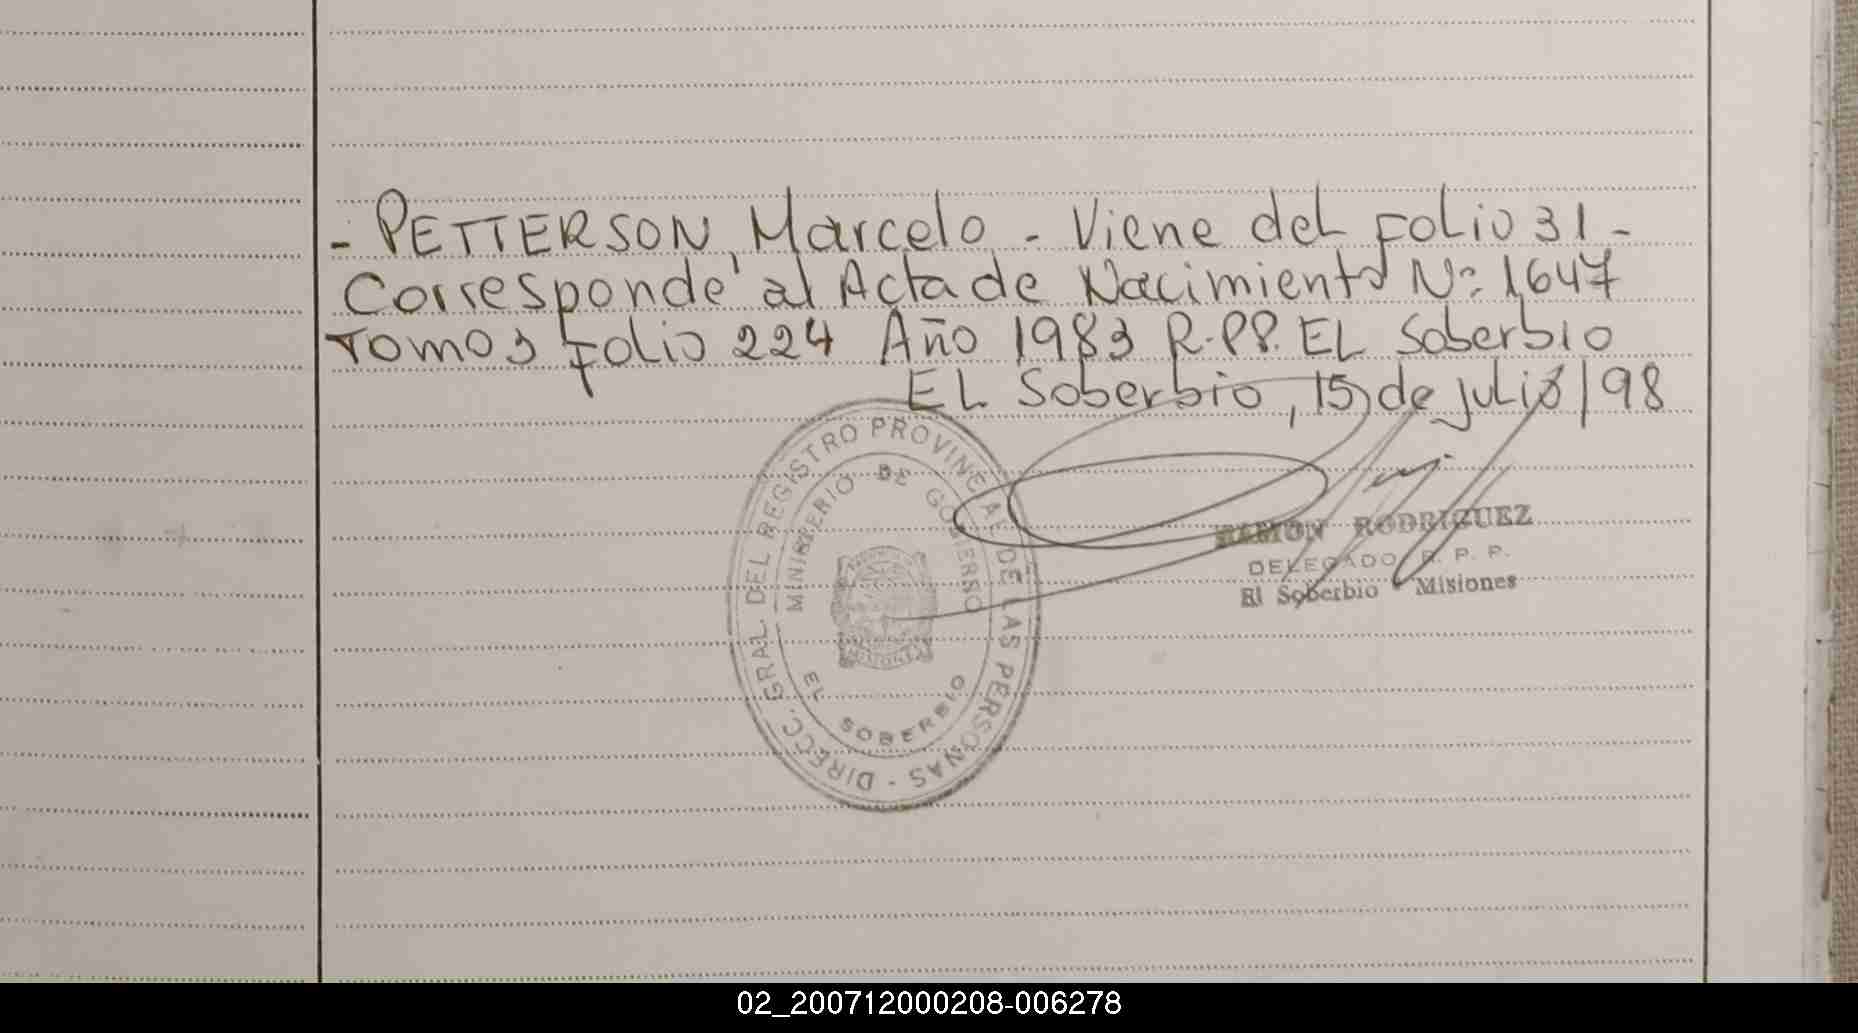 - PETTERSON, Marcelo - Viene del Folio 31 -
Corresponde al Acta de Nacimiento Nº 1647
Tomo 3 Folio 224 Año 1983 R.P.P. EL Soberbio
EL Soberbio, 15 de julio/98
DIRECC. GRAL. DEL REGISTRO PROVINCIAL DE LAS PERSONAS -
MINISTERIO DE GOBIERNO
MISIONES
EL SOBERBIO
RAMON RODRIGUEZ
DELEGADO R. P. P.
El Soberbio - Misiones
02_200712000208-006278